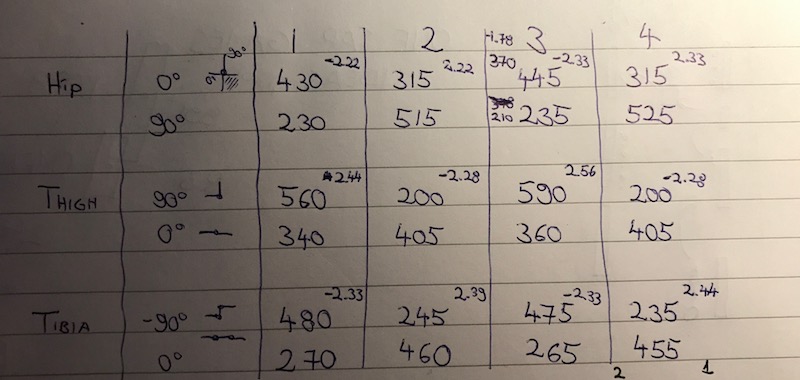 1 2 -1.78 3 4
Hip 0° 0° 90° 430 -2.22 315 2.22 370 445 -2.33 315 2.33
90° 230 515 210 235 525
THIGH 90° 560 2.44 200 -2.28 590 2.56 200 -2.28
0° 340 405 360 405
TIBIA -90° 480 -2.33 245 2.39 475 -2.33 235 2.44
0° 270 460 265 455
2 1